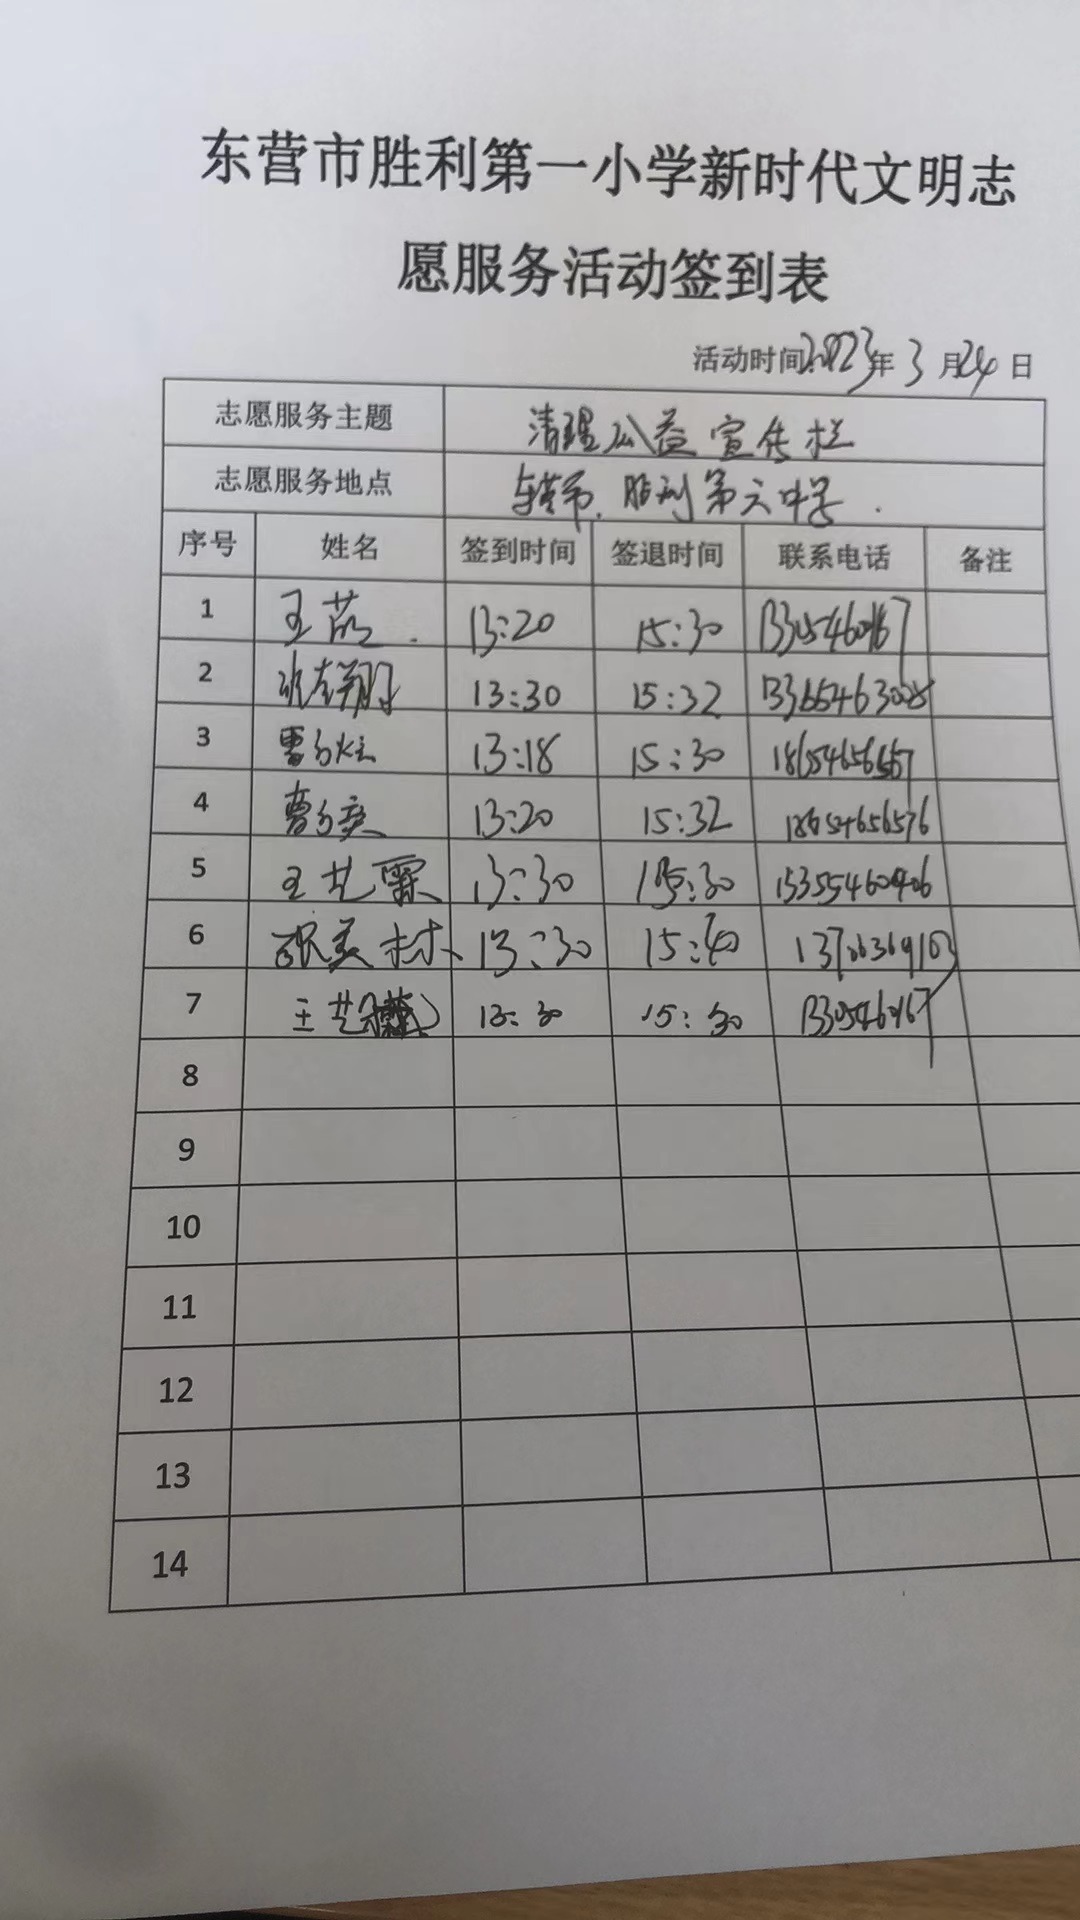 东营市胜利第一小学新时代文明志
愿服务活动签到表
活动时间2023年3月24日
志愿服务主题 清理公益宣传栏
志愿服务地点 胜利第六中学.
序号 姓名 签到时间 签退时间 联系电话 备注
1 王茹 13:20 15:30
2 13:30 15:32
3 曹 13:18 15:30
4 曹 13:20 15:32 18654656576
5 王艺霖 13:30 15:30 15355460406
6 美林 13:30 15:40
7 王艺 13:30 15:30
8
9
10
11
12
13
14